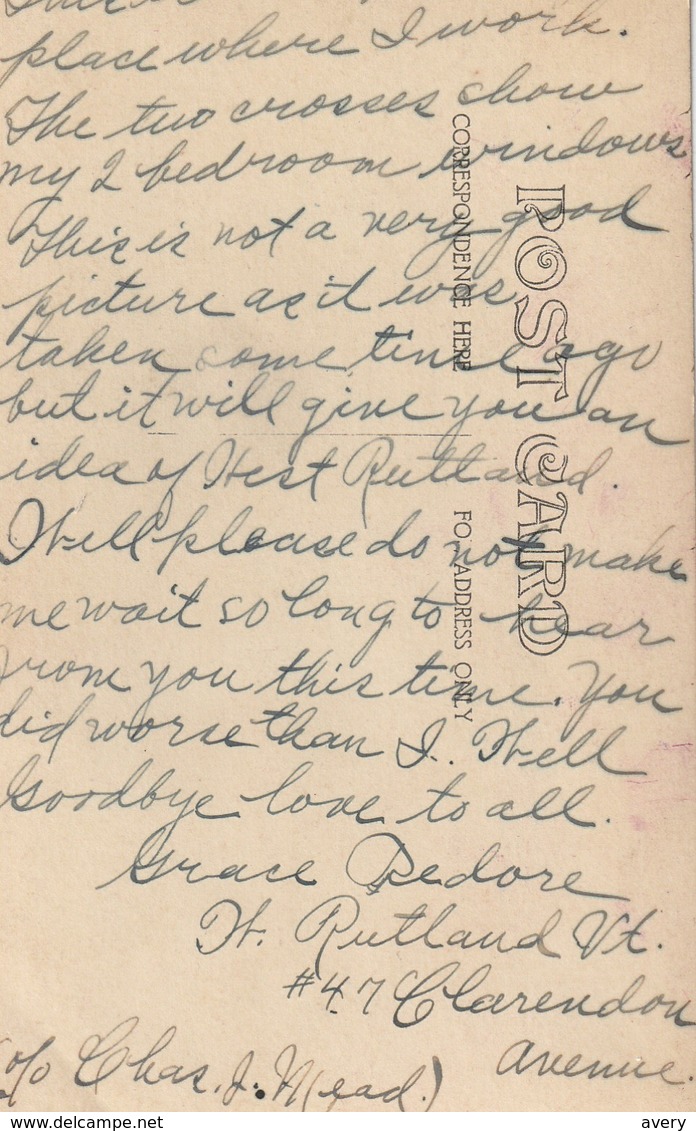 This is
place where I work.
The two crosses show
my 2 bedroom windows
This is not a very good
picture as it was
taken some time ago
but it will give you an
idea of West Rutland.
Well please do not make
me wait so long to hear
from you this time. You
did worse than I. Well
Goodbye love to all.
Grace Pedore
W. Rutland Vt.
#47 Clarendon
Avenue.
c/o Chas. J. Mead.)
POST CARD
CORRESPONDENCE HERE
FOR ADDRESS ONLY
www.delcampe.net
avery